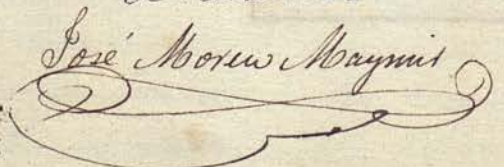 José Moreu Maymir